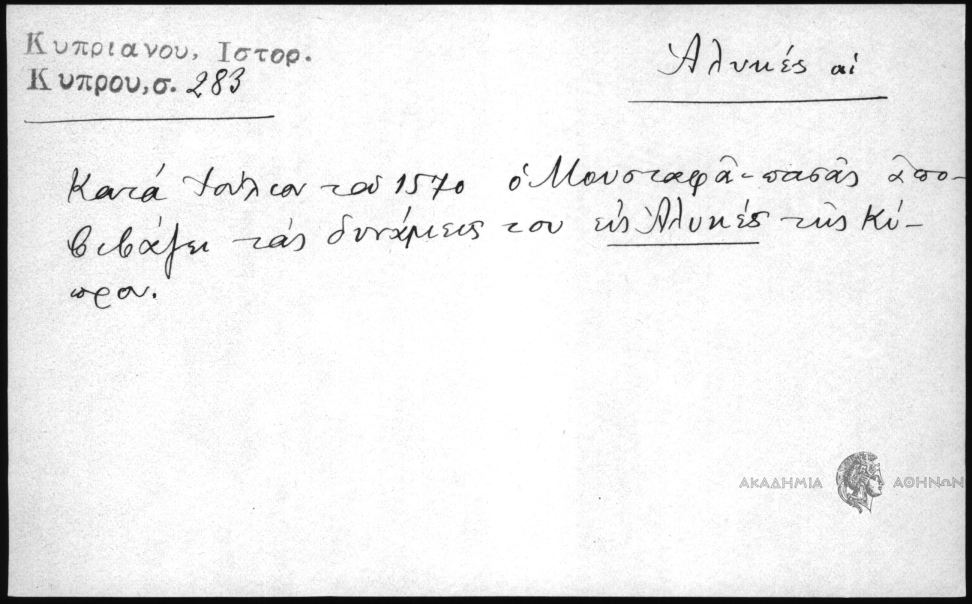 Κυπριανου, Ιστορ.
Κυπρου, σ. 283
Ἁλυκές αἱ
Κατά Ἰούλιον τοῦ 1570 ὁ Μουσταφᾶ-πασᾶς ἀπο-
βιβάζει τάς δυνάμεις του εἰς Ἁλυκές τῆς Κύ-
πρου.
ΑΚΑΔΗΜΙΑ ΑΘΗΝΩΝ